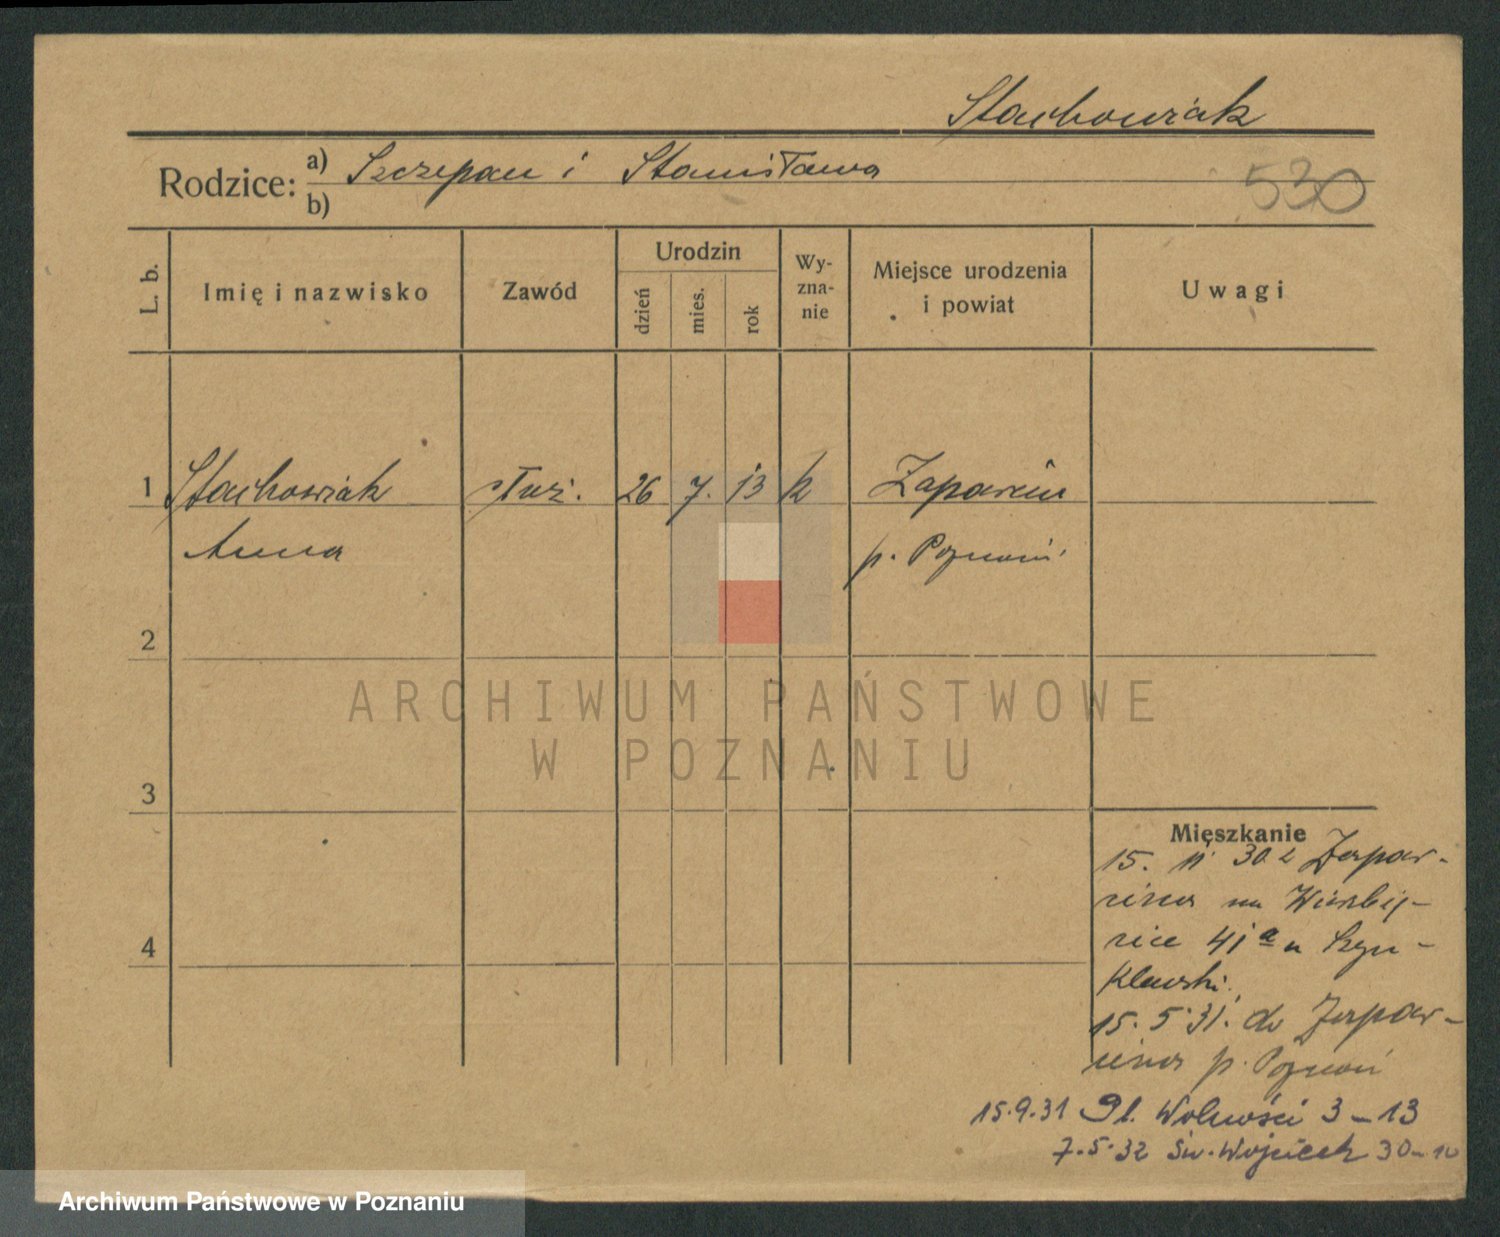 Stachowiak
Rodzice: a) Szczepan i Stanisława
b)
530
L. b.
Imię i nazwisko
Zawód
Urodzin
dzień
mies.
rok
Wy-
zna-
nie
Miejsce urodzenia
i powiat
Uwagi
1 Stachowiak służ. 26 7. 13 k
Anna p. Poznań
2
ARCHIWUM PAŃSTWOWE
W POZNANIU
3
Mieszkanie
15. 11 30 z
41a u
4
15. 5 31. do
p. Poznań
15.9.31 Pl. Wolności 3-13
7.5.32 Św. Wojciech 30-10
Archiwum Państwowe w Poznaniu